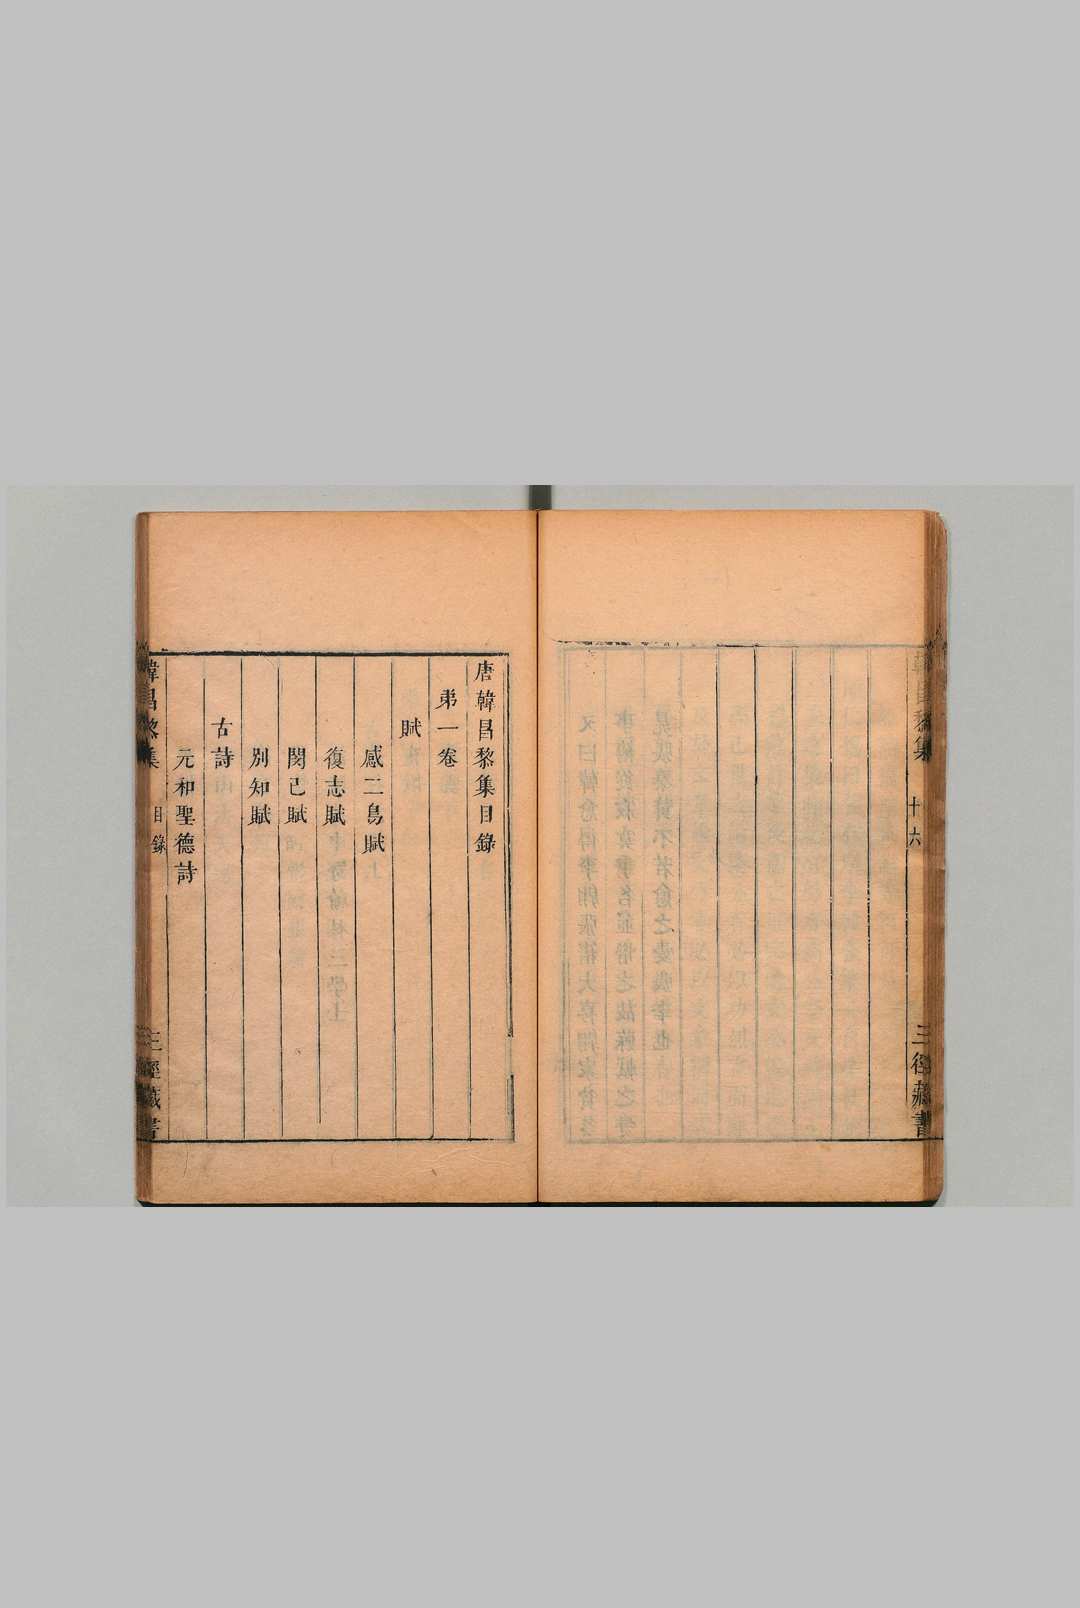 韓昌黎集
十六
三徑藏書
唐韓昌黎集目錄
弟一卷
賦
感二鳥賦
復志賦
閔己賦
別知賦
古詩
元和聖德詩
韓昌黎集
目錄
三徑藏書